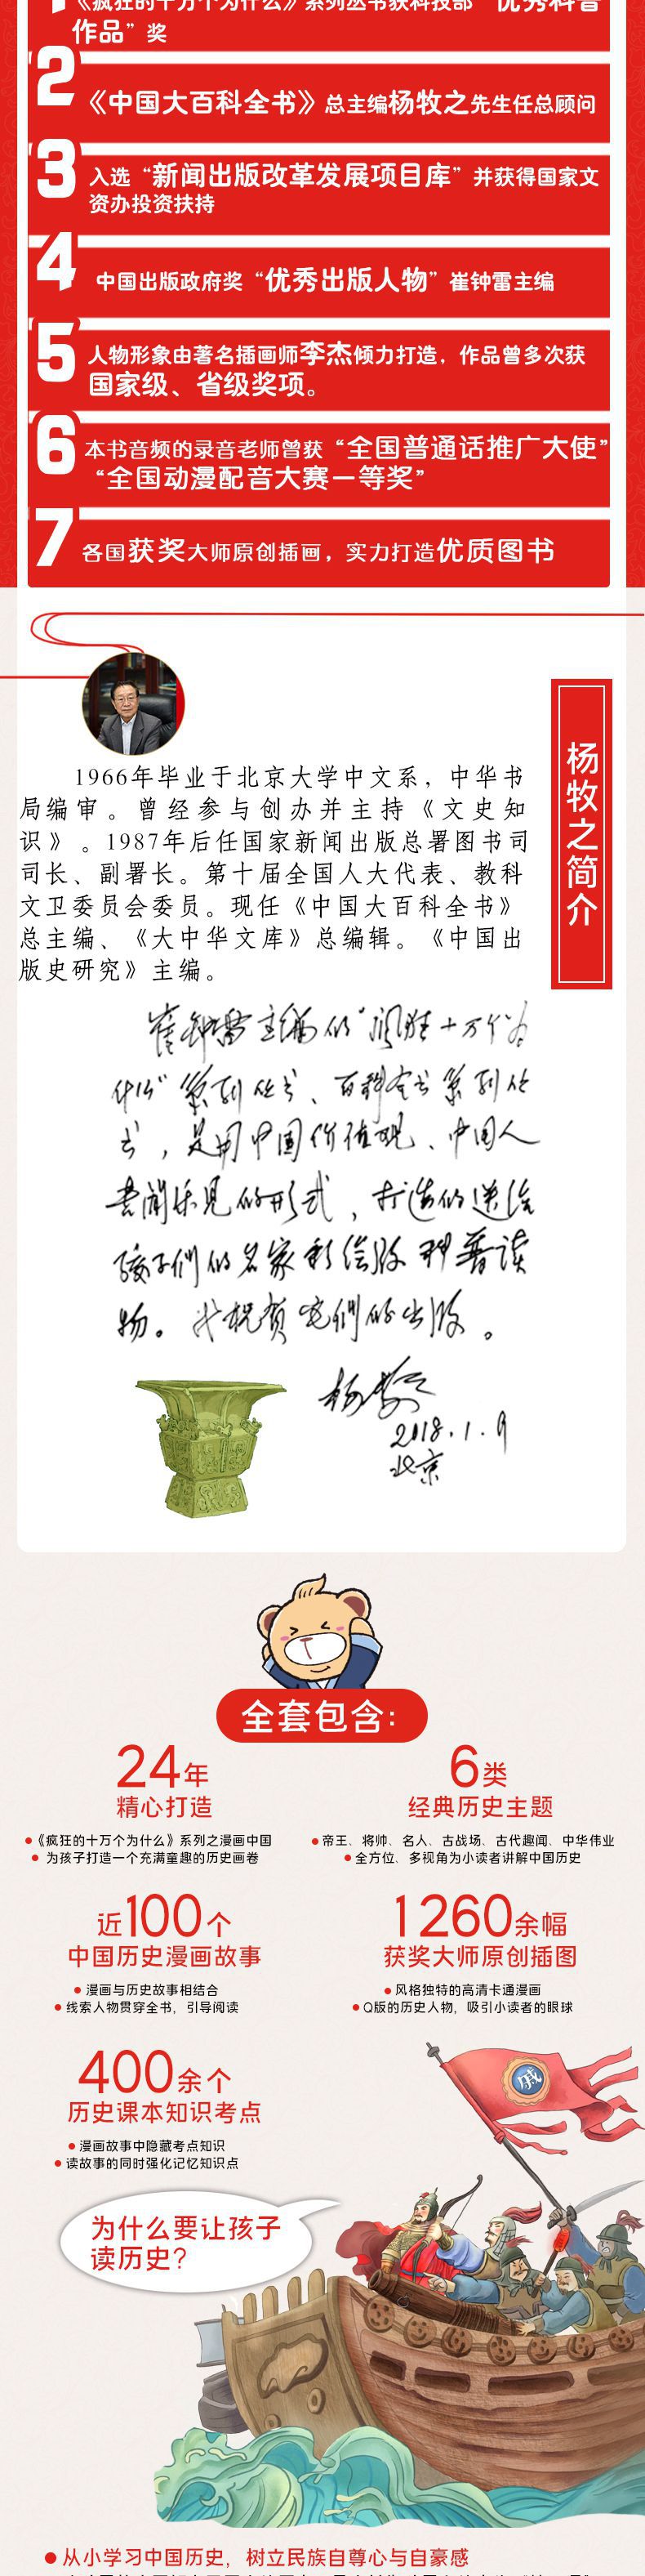 1
《疯狂的十万个为什么》系列丛书获科技部“优秀科普
作品”奖
2
《中国大百科全书》总主编杨牧之先生任总顾问
3
入选“新闻出版改革发展项目库”并获得国家文
资办投资扶持
4
中国出版政府奖“优秀出版人物”崔钟雷主编
5
人物形象由著名插画师李杰倾力打造，作品曾多次获
国家级、省级奖项。
6
本书音频的录音老师曾获“全国普通话推广大使”
“全国动漫配音大赛一等奖”
7
各国获奖大师原创插画，实力打造优质图书
杨牧之简介
1966年毕业于北京大学中文系，中华书
局编审。曾经参与创办并主持《文史知
识》。1987年后任国家新闻出版总署图书司
司长、副署长。第十届全国人大代表、教科
文卫委员会委员。现任《中国大百科全书》
总主编、《大中华文库》总编辑。《中国出
版史研究》主编。
崔钟雷主编的“疯狂十万个为
什么”系列丛书、百科全书系列丛
书，是用中国价值观、中国人
喜闻乐见的形式，打造的送给
孩子們的名家彩绘版科普读
物。我祝贺它們的出版。
杨牧之
2018.1.9
北京
全套包含:
24年
精心打造
《疯狂的十万个为什么》系列之漫画中国
为孩子打造一个充满童趣的历史画卷
6类
经典历史主题
帝王、将帅、名人、古战场、古代趣闻、中华伟业
全方位、多视角为小读者讲解中国历史
近100个
中国历史漫画故事
漫画与历史故事相结合
线索人物贯穿全书，引导阅读
1260余幅
获奖大师原创插图
风格独特的高清卡通漫画
Q版的历史人物，吸引小读者的眼球
400余个
历史课本知识考点
漫画故事中隐藏考点知识
读故事的同时强化记忆知识点
戚
为什么要让孩子
读历史?
从小学习中国历史，树立民族自尊心与自豪感